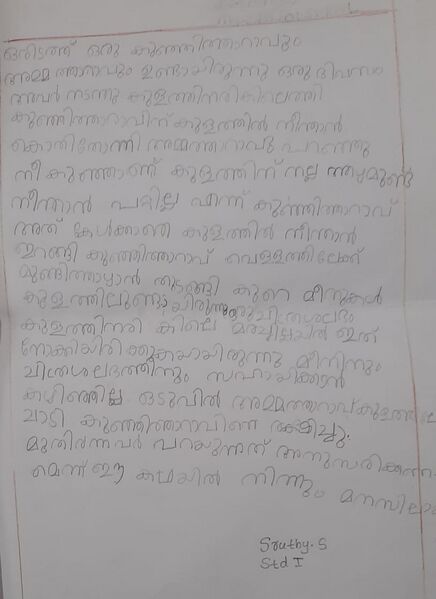 ഒരിടത്ത് ഒരു കുഞ്ഞിത്താറാവും
അമ്മത്താറാവും ഉണ്ടായിരുന്നു ഒരു ദിവസം
അവർ നടന്നു കുളത്തിനരികിലെത്തി
കുഞ്ഞിത്താറാവിന് കുളത്തിൽ നീന്താൻ
കൊതിതോന്നി അമ്മത്താറാവു പറഞ്ഞു
നീ കുഞ്ഞാണ് കുളത്തിന് നല്ല ആഴമുണ്ട്
നീന്താൻ പറ്റില്ല എന്ന് കുഞ്ഞിത്താറാവ്
അത് കേൾക്കാതെ കുളത്തിൽ നീന്താൻ
ഇറങ്ങി കുഞ്ഞിത്താറാവ് വെള്ളത്തിലേക്ക്
മുങ്ങിത്താഴാൻ തുടങ്ങി കുറെ മീനുകൾ
കുളത്തിലുണ്ടായിരുന്നു ഒരു ചിത്രശലഭം
കുളത്തിനരികിലെ മരച്ചില്ലയിൽ ഇത്
നോക്കിയിരിക്കുകയായിരുന്നു മീനിനും
ചിത്രശലഭത്തിനും സഹായിക്കാൻ
കഴിഞ്ഞില്ല. ഒടുവിൽ അമ്മത്താറാവ്
ചാടി കുഞ്ഞിത്താറാവിനെ രക്ഷിച്ചു.
മുതിർന്നവർ പറയുന്നത്
മെന്ന് ഈ കഥയിൽ നിന്നും
Sruthy. S
Std I